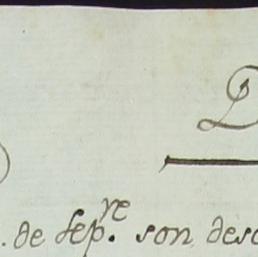 D
. de sep.re son desc